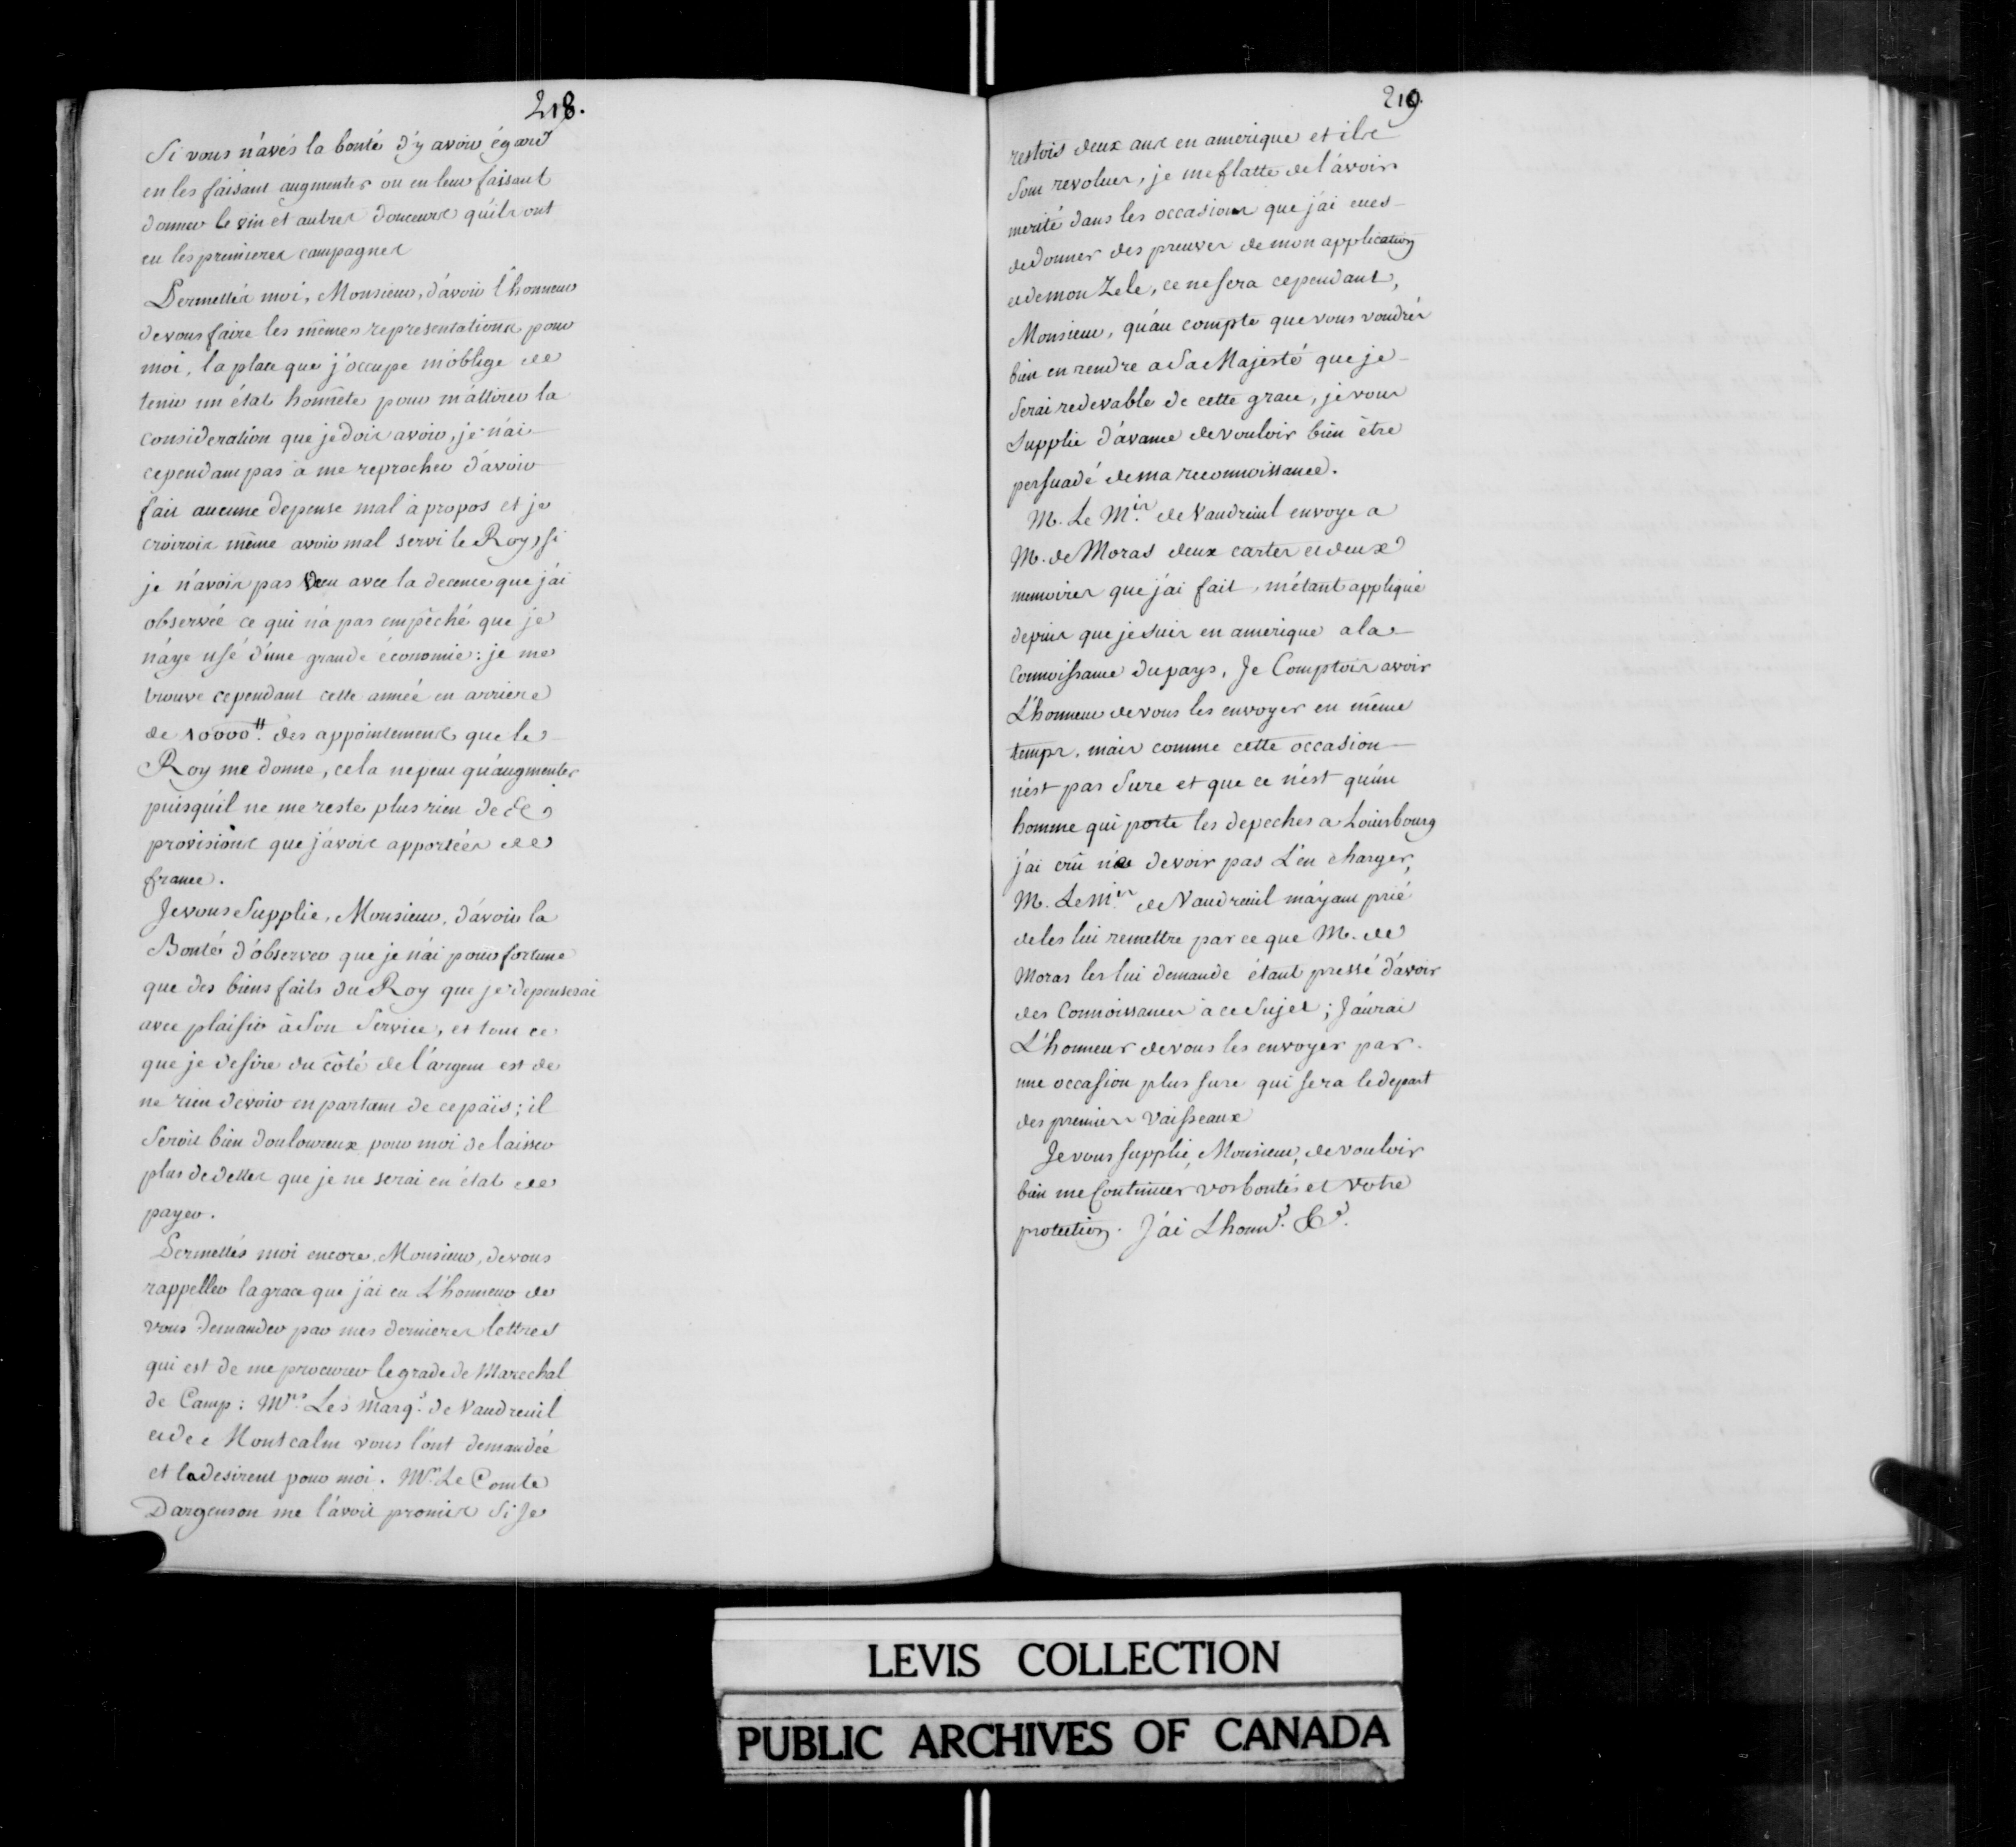 218.
Si vous n'avés la bonté d'y avoir égard
en les faisant augmenter ou en leur faisant
donner le vin et autres douceurs qu'ils ont
eu les premieres campagnes
Permettés moi, Monsieur, d'avoir l'honneur
de vous faire les mêmes representations pour
moi, la place que j'occupe m'oblige de
tenir un état honnête pour m'attirer la
consideration que je dois avoir, je n'ai
cependant pas à me reprocher d'avoir
fait aucune depense mal à propos et je
croirois même avoir mal servi le Roy, si
je n'avois pas vecu avec la decence que j'ai
observée ce qui n'a pas empêché que je
n'aye usé d'une grande économie: je me
trouve cependant cette année en arriere
de 10000⁗. des appointements que le
Roy me donne, cela ne peut qu'augmenter
puisqu'il ne me reste plus rien de
provisions que j'avois apportées de
france.
Je vous Supplie, Monsieur, d'avoir la
Bonté d'observer que je n'ai pour fortune
que des biensfaits du Roy que je depenserai
avec plaisir à Son Service, et tout ce
que je desire du côté de l'argent est de
ne rien devoir en partant de ce païs; il
Seroit bien douloureux pour moi de laisser
plus de dettes que je ne serai en état de
payer.
Permettés moi encore, Monsieur, de vous
rappeller la grace que j'ai eu L'honneur de
vous demander par mes dernieres lettres
qui est de me procurer le grade de Marechal
de Camp: Mrs. Les Marqs. de Vaudreuil
et de Montcalm vous l'ont demandée
et la desirent pour moi. Mr. Le Comte
Dargenson me l'avoit promis Si Je
219.
restois deux ans en amerique et ils
Sont revolus, je me flatte de l'avoir
merité dans les occasions que j'ai eues
de donner des preuves de mon application
et de mon Zele, ce ne sera cependant,
Monsieur, qu'au compte que vous voudrés
bien en rendre a Sa Majesté que je
Serai redevable de cette grace, je vous
Supplie d'avance de vouloir bien être
persuadé de ma reconnoissance.
M. Le Mis. de Vaudreuil envoye a
M. de Moras deux cartes et deux
memoires que j'ai fait, m'étant appliqué
depuis que je suis en amerique a la
Connoissance du pays, Je Comptois avoir
L'honneur de vous les envoyer en même
temps, mais comme cette occasion
n'est pas Sure et que ce n'est qu'un
homme qui porte les depeches a Louisbourg
j'ai crû ne devoir pas L'en charger,
M. Le Mis. de Vaudreuil m'ayant prié
de les lui remettre parce que M. de
Moras les lui demande étant pressé d'avoir
des Connoissances à ce Sujet; J'aurai
L'honneur de vous les envoyer par
une occasion plus sure qui sera le depart
des premiers Vaisseaux
Je vous supplie, Monsieur, de vouloir
bien me Continuer vos bontés et votre
protection. J'ai L'honnr. &c.
LEVIS COLLECTION
PUBLIC ARCHIVES OF CANADA